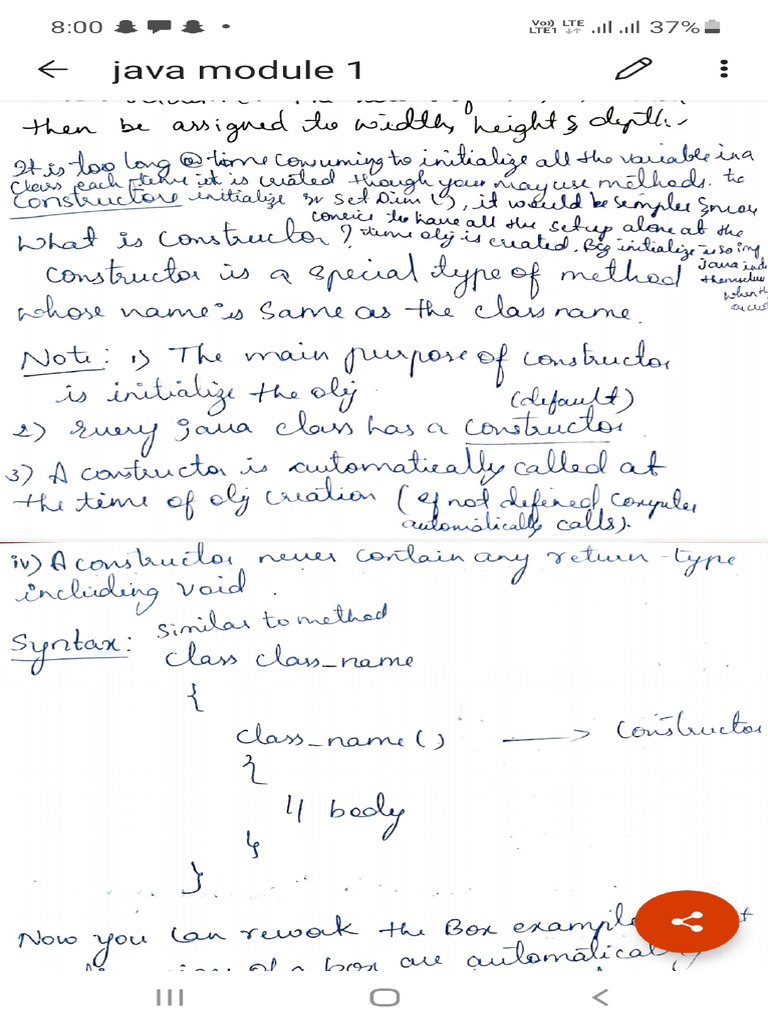 8:00
Vo)) LTE
LTE1
37%
java module 1
then be assigned to width, height & depth.
It is too long @ time consuming to initialize all the variable in a
class each time it is created though your may use methods. to
Constructors initialize or Set Dim (), it would be simpler & more
to have all the setup alone at the
What is constructor? time obj is created. initialize
java
Constructor is a special type of method
whose name is same as the class name.
when
Note: 1) The main purpose of constructor
is initialize the obj
(default)
2) Every java class has a constructor
3) A constructor is automatically called at
the time of obj creation (If not defined computer
automatically calls).
iv) A constructor never contain any return-type
including void.
Syntax: similar to method
class class_name
{
class_name() → Constructor
{
// body
}
}
Now you can rework the Box example
of a box are automatically